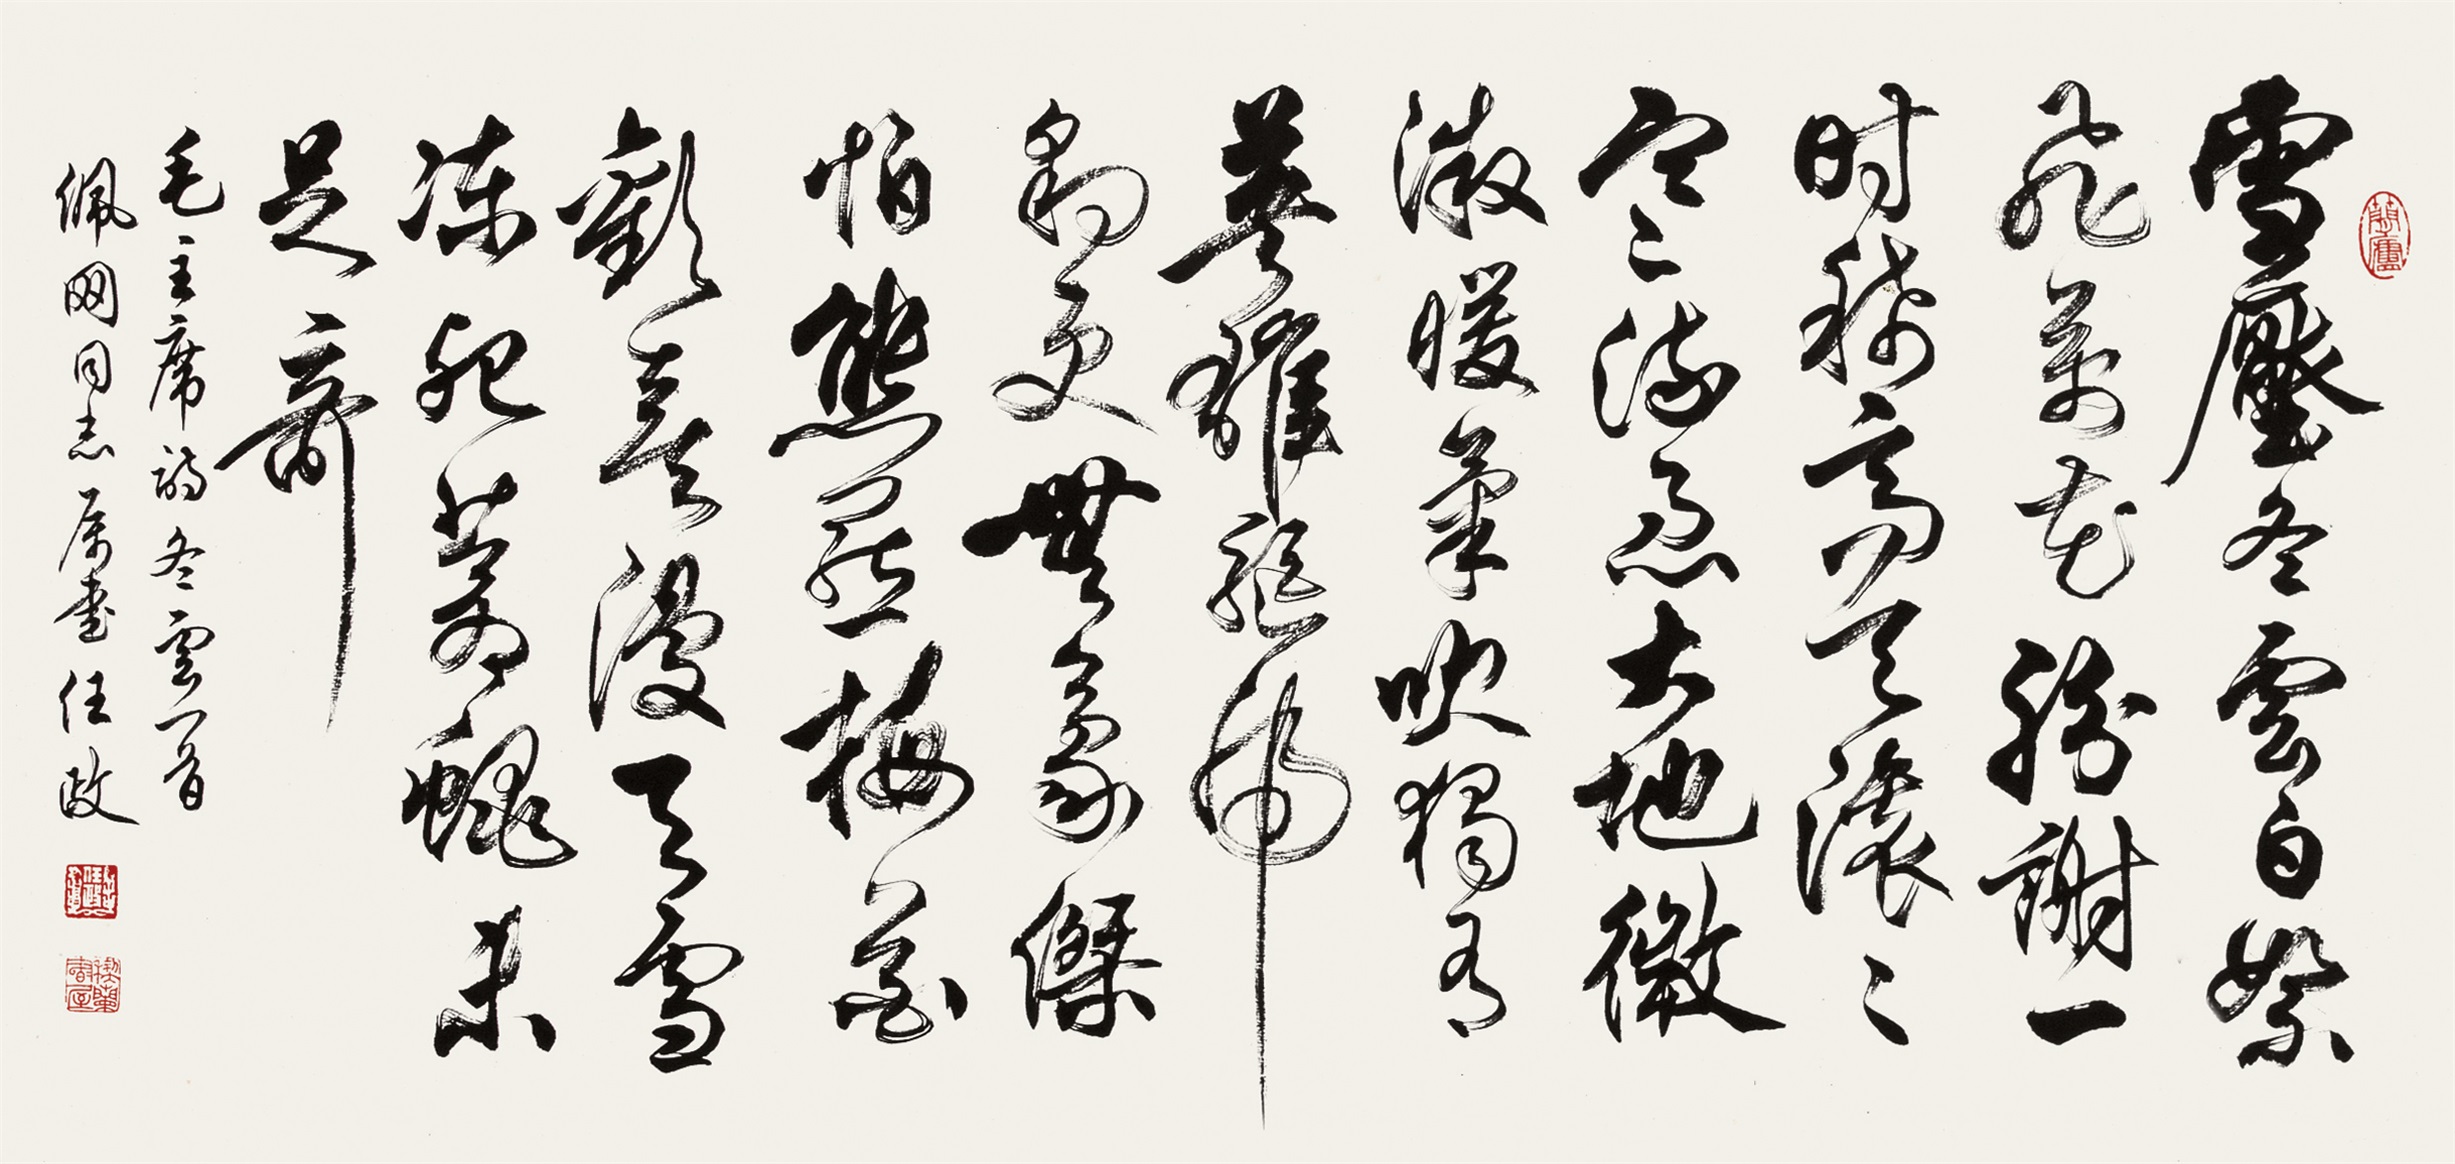 雪壓冬雲白絮
飛萬花紛謝一
时稀高天滚々
寒流急大地微
微暖氣吹獨有
英雄驅虎
豹更無豪傑
怕熊羆梅花
歡喜漫天雪
凍死蒼蠅未
足奇
毛主席詩冬雲一首
佩网同志属書任政